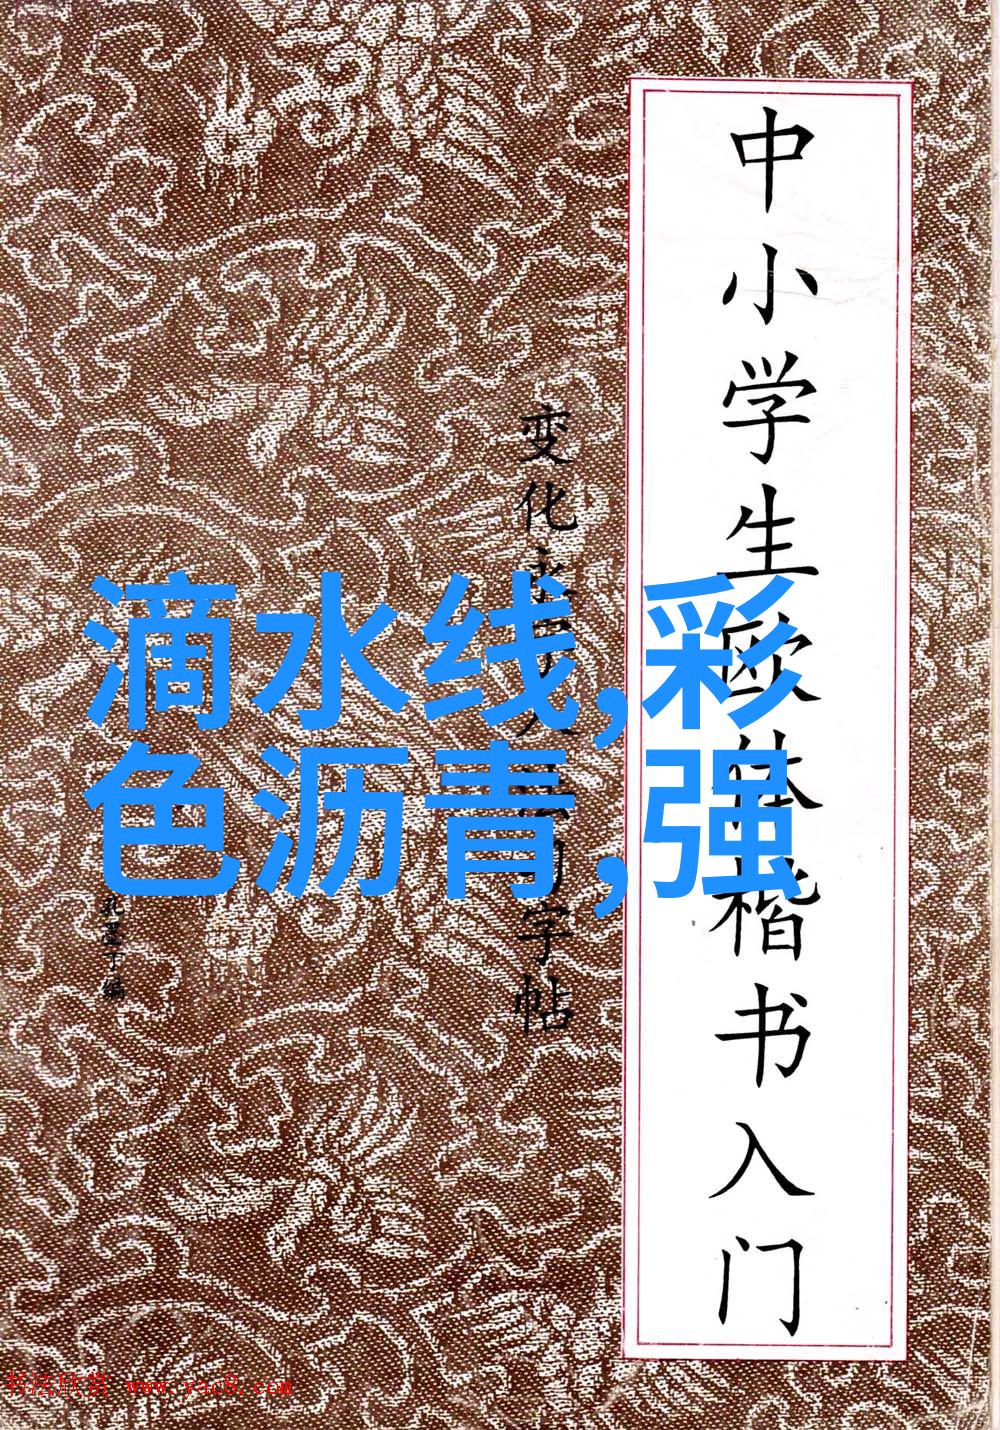 中小学生欧体楷书入门
变化字帖
孔墨丁编
滴水线,彩
色沥青,强
书法欣赏 www.yac8.com